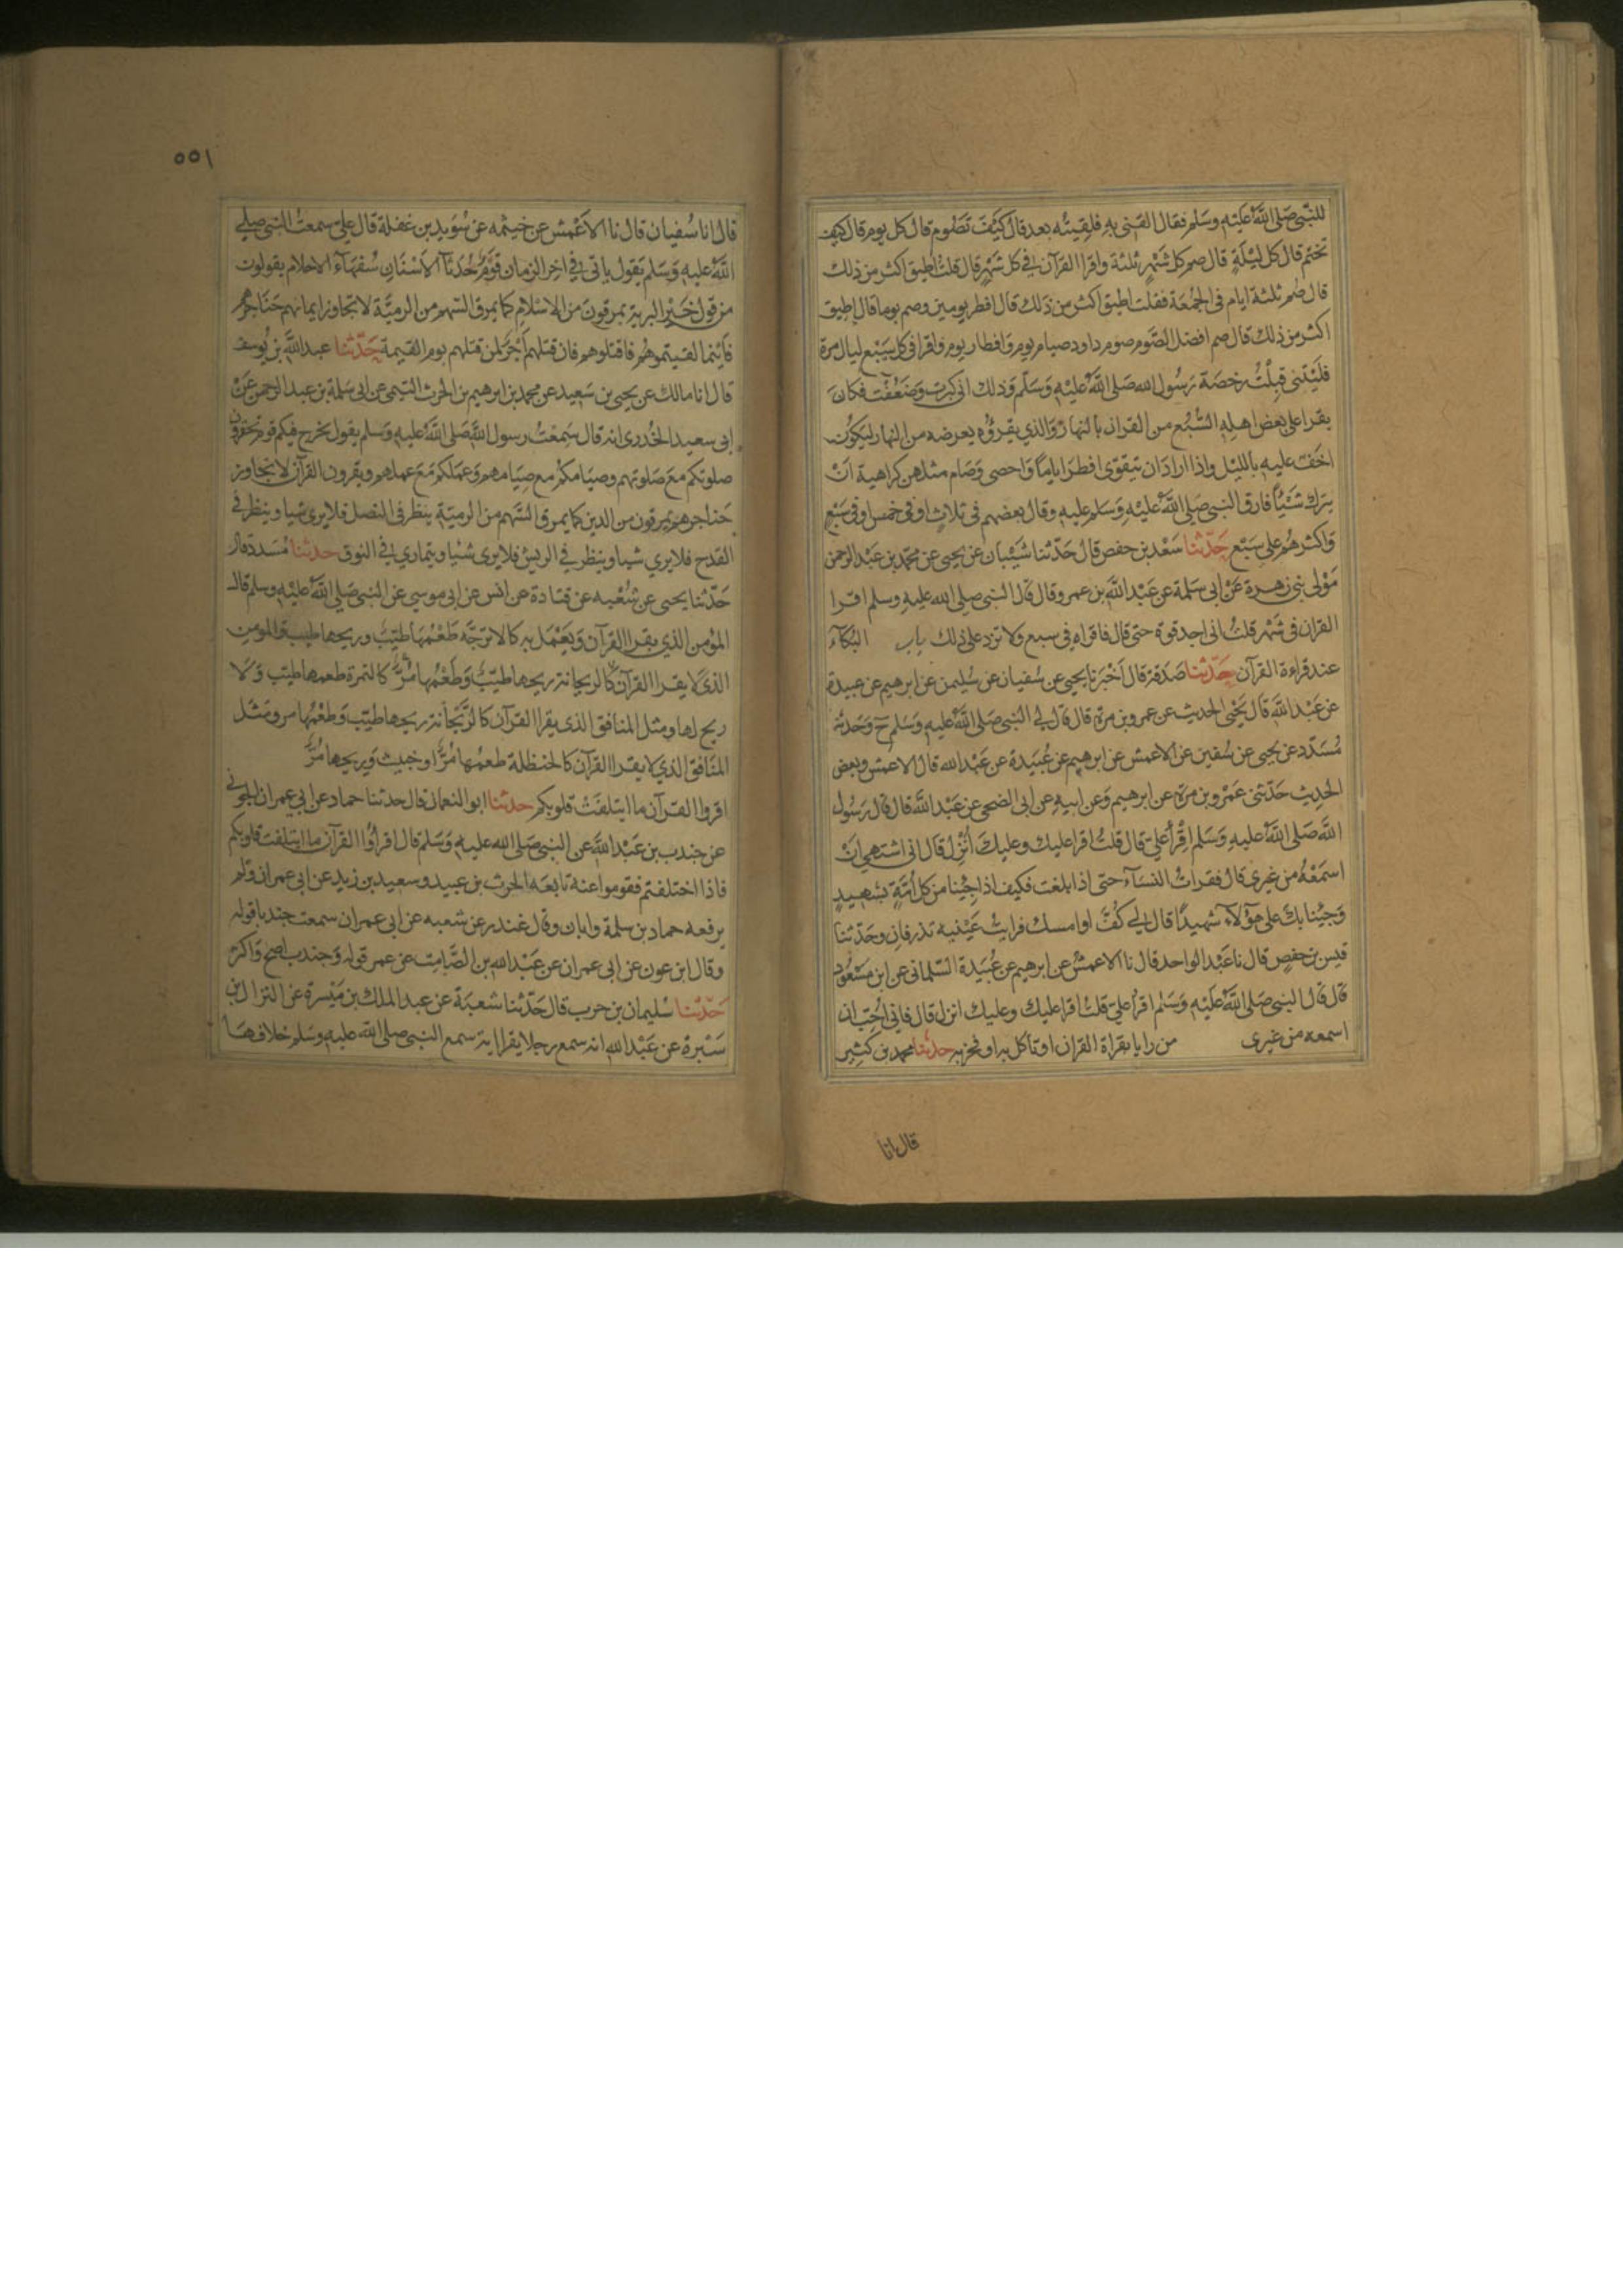 للنبي صَلى اللهُ عَلَيْهِ وسَلم فقال القنى به فلقِيتُه بعد قال كيفَ تَصُوم قال كل يوم قال كيف
تختم قال كل ليلةٍ قال صم كل شهرٍ ثلثة واقرا القرآن في كل شهرٍ قال قلتُ اطيق اكثر من ذلك
قال صُم ثلثة ايام في الجمُعَة فقلت اطيق اكثر من ذلك قال افطر يومين وصم يوما قال اطيق
اكثر من ذلك قال صم افضل الصّوم صوم داود صيام يوم وافطار يوم واقرا في كل سَبْع ليال مرة
فليتنى قبلتُ رخصة رَسُول الله صَلى اللهُ عليْهِ وَسَلم وَذلك انى كبرت وضعُفت فكانَ
يقرا على بعض اهله السُّبُع من القران بالنهار وَالذي يقرؤُه يعرضه من النهار ليكوُن
اخفّ عليه بالليْل واذا ارادَ ان يتقوّى افطرَ اياماً وَاحصى وَصَام مثلهن كراهية انْ
يترك شَيْئاً فارق النبى صَلى اللهُ عليْهِ وَسَلم عليه وقال بعضهم فى ثلاثٍ او في خمس او في سَبْع
وَاكثرهُم على سَبْع حَدّثنا سَعْد بن حفص قال حَدّثنا شَيْبَان عن يحيى عن محمّد بن عَبْد الرحمن
مَوْلى بنى زهرة عَنْ ابى سَلمة عن عَبْد الله بن عمرو قال قال النبى صلى الله عليه وسلم اقرا
القران فى شهْر قلتُ انى اجد قوة حتى قال فاقراه فى سبع ولا تزد على ذلك باب البُكآء
عند قراءة القرآن حَدّثنا صَدَقة قال اَخْبَرَنا يحيى عن سُفيان عن سُليمن عن ابرهيم عن عبيدة
عن عَبْد الله قال يَحْيى الحديث عن عمرو بن مرّة قال قال لي النبى صَلى اللهُ عليهِ وَسَلم ح وَحَدثنا
مُسَدّد عن يحيى عن سُفين عن الاعمش عن ابرهيم عن عُبَيدة عن عَبْد الله قال الاعمش وبعض
الحديث حَدّثنى عَمْرو بن مرّة عن ابرهيم وَعن ابيه عن ابى الضحى عن عَبْد الله قال قال رَسُول
الله صَلى اللهُ عليهِ وَسَلم اقرأ علىّ قال قلتُ اقرا عليك وعليكَ اُنزلَ قال انى اشتهى انْ
اسمَعْهُ من غيرى قال فقراتُ النسآء حتى اذا بلغت فكيف اذا جئنا من كل اُمّةٍ بشهيدٍ
وَجئنا بكَ على هؤلآء شهيدًا قال لي كُفّ اوامسك فرايتُ عَيْنيه تذرفان وحَدّثنا
قيس بن حفصٍ قال نا عَبْد الواحد قال نا الاعمشُ عن ابرهيم عن عُبَيدة السّلمانى عن ابن مَسْعُود
قال قال النبى صَلى اللهُ عَلَيْهِ وَسَلم اقرا علىّ قلتُ اقرا عليك وعليك انزل قال فانى اُحِبّ ان
اسمعه من غيرى من رايا بقراة القران او تاكل به او فخر به حدثنا محمد بن كثير
قال انا
٥٥١
قال انا سُفيان قال نا الاَعْمش عن خيثمه عن سُوَيد بن غفلة قال علىّ سمعتُ النبى صلى
اللهُ عليهِ وَسَلم يَقول ياتى في اخر الزمان قومٌ حُدَثآ الاَسْنَانِ سُفهَآءُ الاحلام يقولون
من قول خَيْر البرية يمرقونَ من الاِسْلام كما يمرق السّهم من الرميّة لا يتجاوز ايمانهم حَنَاجرهم
فاَيْنما لقيتموهُم فاقتلوهم فان قتلهم اَجْرٌ لمن قتلهم يوم القيمة حَدّثنا عبد الله بن يُوسف
قال انا مالك عن يحيى بن سَعِيد عن محمد بن ابرهيم بن الحرث التيمى عن ابى سَلمة بن عبد الرحمن عَنْ
ابى سعيد الخُدرى انه قال سَمِعْتُ رسول الله صَلى اللهُ عليهِ وَسلم يقول يخرج فيكم قوم تحقرون
صلوتكم مَعَ صَلوتهم وصيَامكُمْ مع صِيَامهم وَعَمَلكم مَعَ عملهم ويقرون القرآن لا يتجاوز
حَناجرهم يمرقون من الدين كما يمرق السّهم من الرميّة ينظر فى النصل فلا يرى شيا وينظر في
القدح فلا يري شيا وينظر في الريش فلا يرى شيْئا ويتماري في الفوق حدثنا مُسَدّد قال
حَدّثنا يحيى عن شُعْبه عن قتادة عن انس عن ابى موسي عن النبى صَلى اللهُ عليْهِ وسلم قال
المؤمن الذي يقرا القرآن وَيَعْمَل به كالاترجّه طَعْمُهَا طيّبٌ وريحها طيب والمومن
الذى لا يقرا القرآن كالريحانة ريحها طيّبٌ وَطَعْمُها مُرٌّ كالتمرة طعمها طيّب وَلا
ريح لها ومثل المنافق الذى يقرا القرآن كالرّيحَانة ريحها طيّب وَطعْمُها مر ومَثل
المنَافق الذي لا يقرا القرآن كالحنظلة طعمُها مُرٌّ او خبيث وَريحها مُرٌّ
اقروا القرآن ما ايتلفَتْ قلوبكم حدثنا ابو النعمان قال حدثنا حماد عن ابى عمران الجونى
عن جندب بن عَبْد الله عن النبى صَلى الله عليهِ وَسَلم قال اقرأوا القرآن ما ايتلفت قلوبكم
فاذا اختلفتم فقوموا عنه تابعَه الحرث بن عبيد وسعيد بن زيد عن ابى عمران ولم
يرفعه حماد بن سلمة وابان وقال غندر عن شعبه عن ابى عمران سمعت جندبا قوله
وقال ابن عون عن ابى عمران عن عَبْد الله بن الصّامت عن عمر قوله وَجندب اصح وَاكثر
حَدّثنا سُليمان بن حرب قال حَدّثنا شعبَة عن عبد الملك بن مَيْسرة عن النزال بن
سَبْرة عن عَبْد الله انه سمع رجلا يقرا اية سمع النبى صلى الله عليه وسَلم خلافهَا